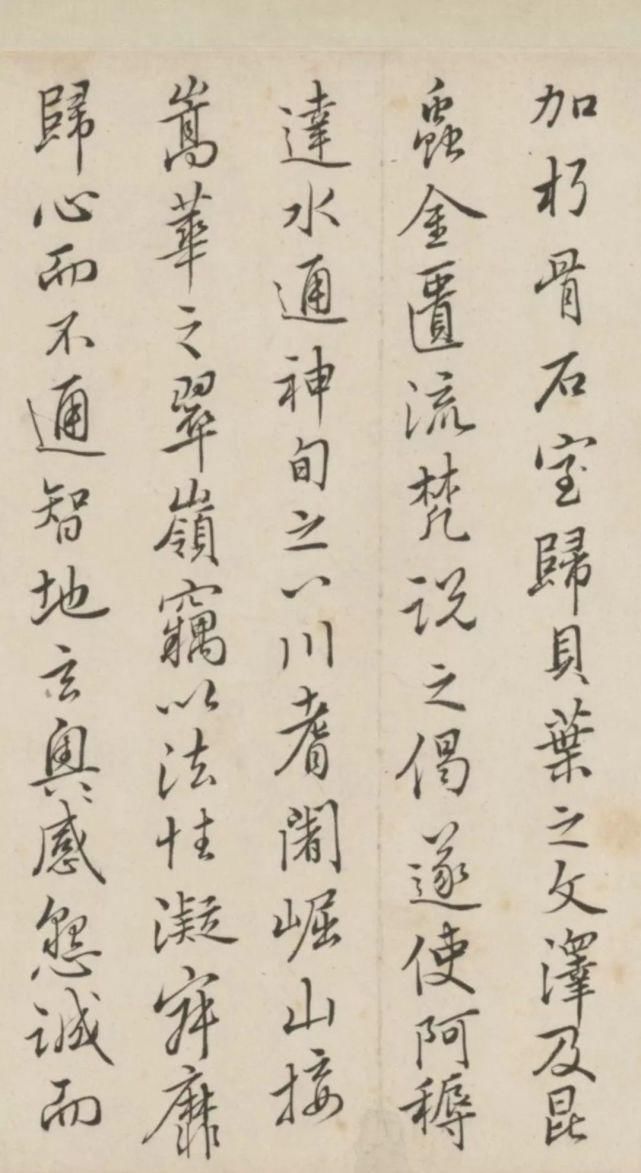 加朽骨石室歸貝葉之文澤及昆
蟲金匱流梵說之偈遂使阿耨
達水通神旬之八川耆闍崛山接
嵩華之翠嶺竊以法性凝寂靡
歸心而不通智地玄奧感懇誠而